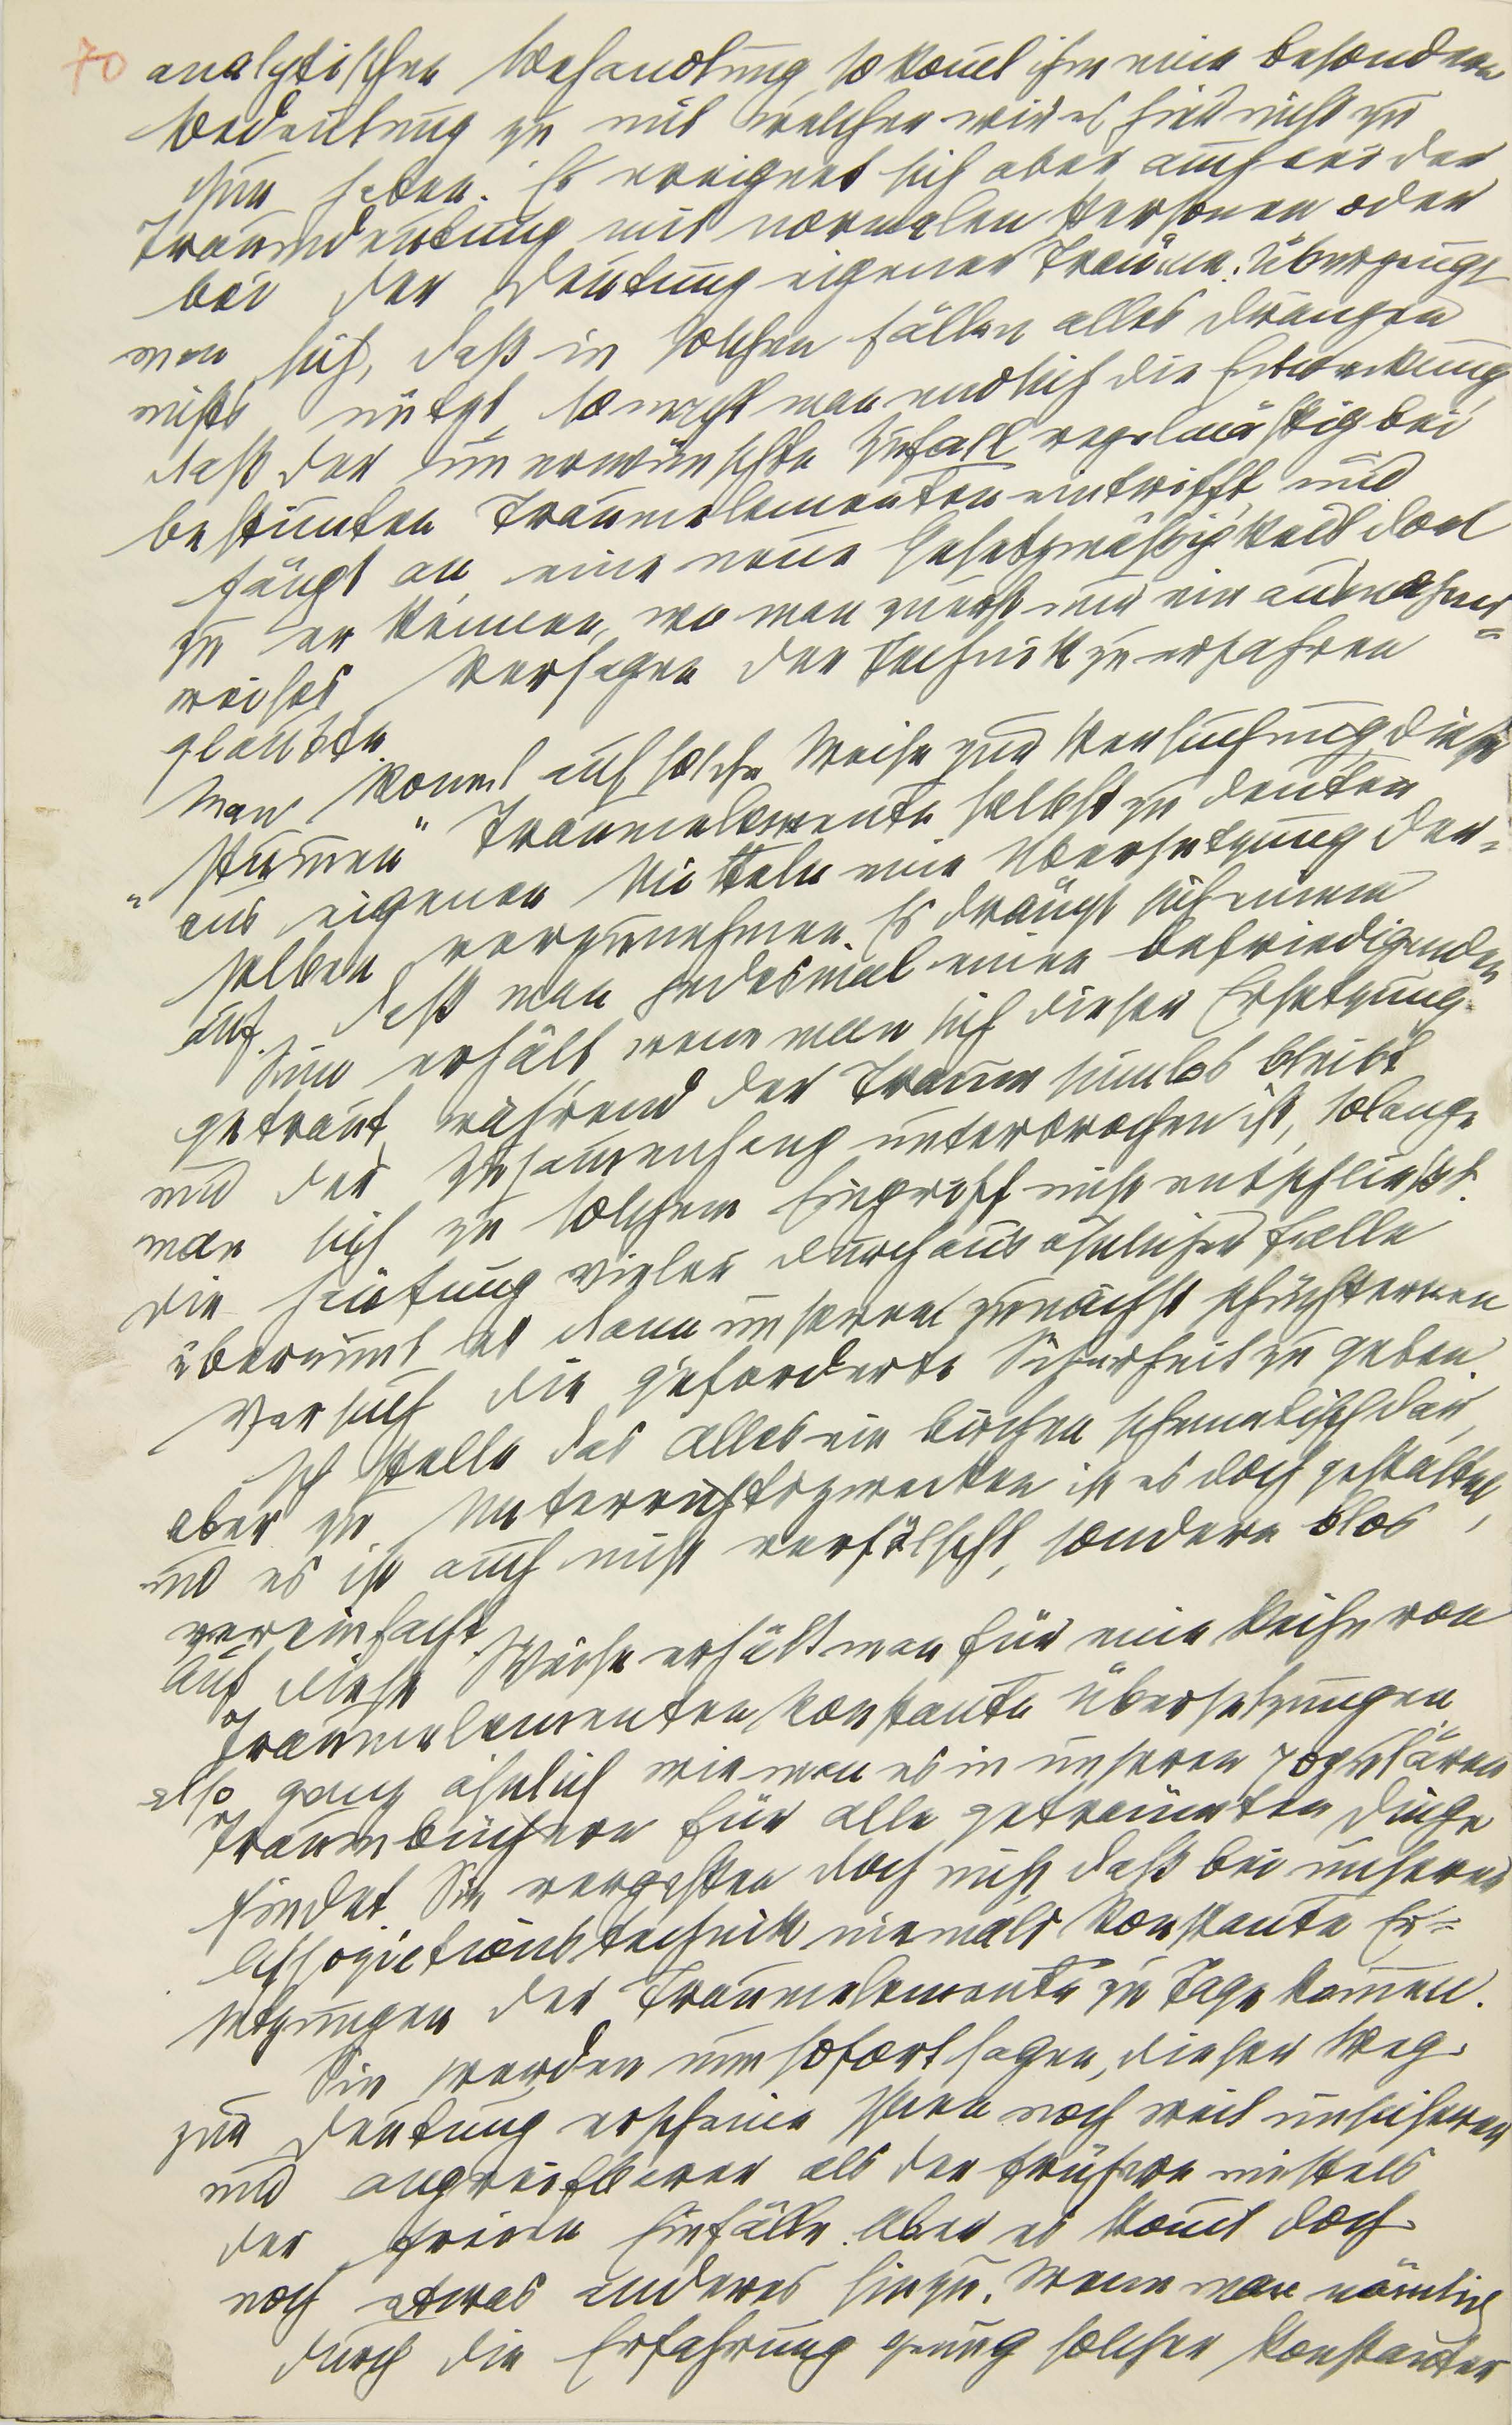 70
analytischen Behandlung so komt ihm eine besondere
Bedeutung zu mit welcher wir es hier nicht zu
thun haben. Es ereignet sich aber auch bei der
Traumdeutung mit normalen Personen oder
bei der Deutung eigener Träume. Überzeugt
man sich, daß in solchen Fällen alles Drängen
nichts nützt, so macht man endlich die Entdeckung,
daß der unerwünschte Zufall regelmäßig bei
bestimten Traumelementen eintrifft und
fängt an eine neue Gesetzmäßigkeit dort
zu er kennen, wo man zuerst nur ein ausnahms=
weises Versagen der Technik zu erfahren
glaubte.
Man komt auf solche Weise zur Versuchung, diese
"stumen" Traumelemente selbst zu deuten
aus eigenen Mitteln eine Übersetzung der=
selben vorzunehmen. Es drängt sich einem
auf, daß man jedesmal einen befriedigenden
Sinn erhält wenn man sich dieser Ersetzung
getraut, während der Traum sinnlos bleibt
und der Zusamenhang unterbrochen ist, solange
man sich zu solchem Eingriff nicht entschließt.
Die Häufung vieler durchaus ähnlicher Fälle
übernimt es dann unserem zunächst schüchternen
Versuch die geforderte Sicherheit zu geben.
Ich stelle das alles ein bischen schematisch dar,
aber zu Unterrichtszwecken ist es doch gestattet,
und es ist auch nicht verfälscht, sondern blos
vereinfacht.
Auf diese Weise erhält man für eine Reihe von
Traumelementen konstante Übersetzungen
also ganz ähnlich wie man es in unseren populären
Traumbüchern für alle geträumten Dinge
findet. Sie vergessen doch nicht, daß bei unserer
Assoziationstechnik niemals konstante Er=
setzungen der Traumelemente zu Tage kommen.
Sie werden nun sofort sagen, dieser Weg
zur Deutung erscheine Ihnen noch weit unsicherer
und angreifbarer als der frühere mittels
der freien Einfälle. Aber es komt doch
noch etwas anderes hinzu. Wenn man nämlich
durch die Erfahrung genug solcher konstanter